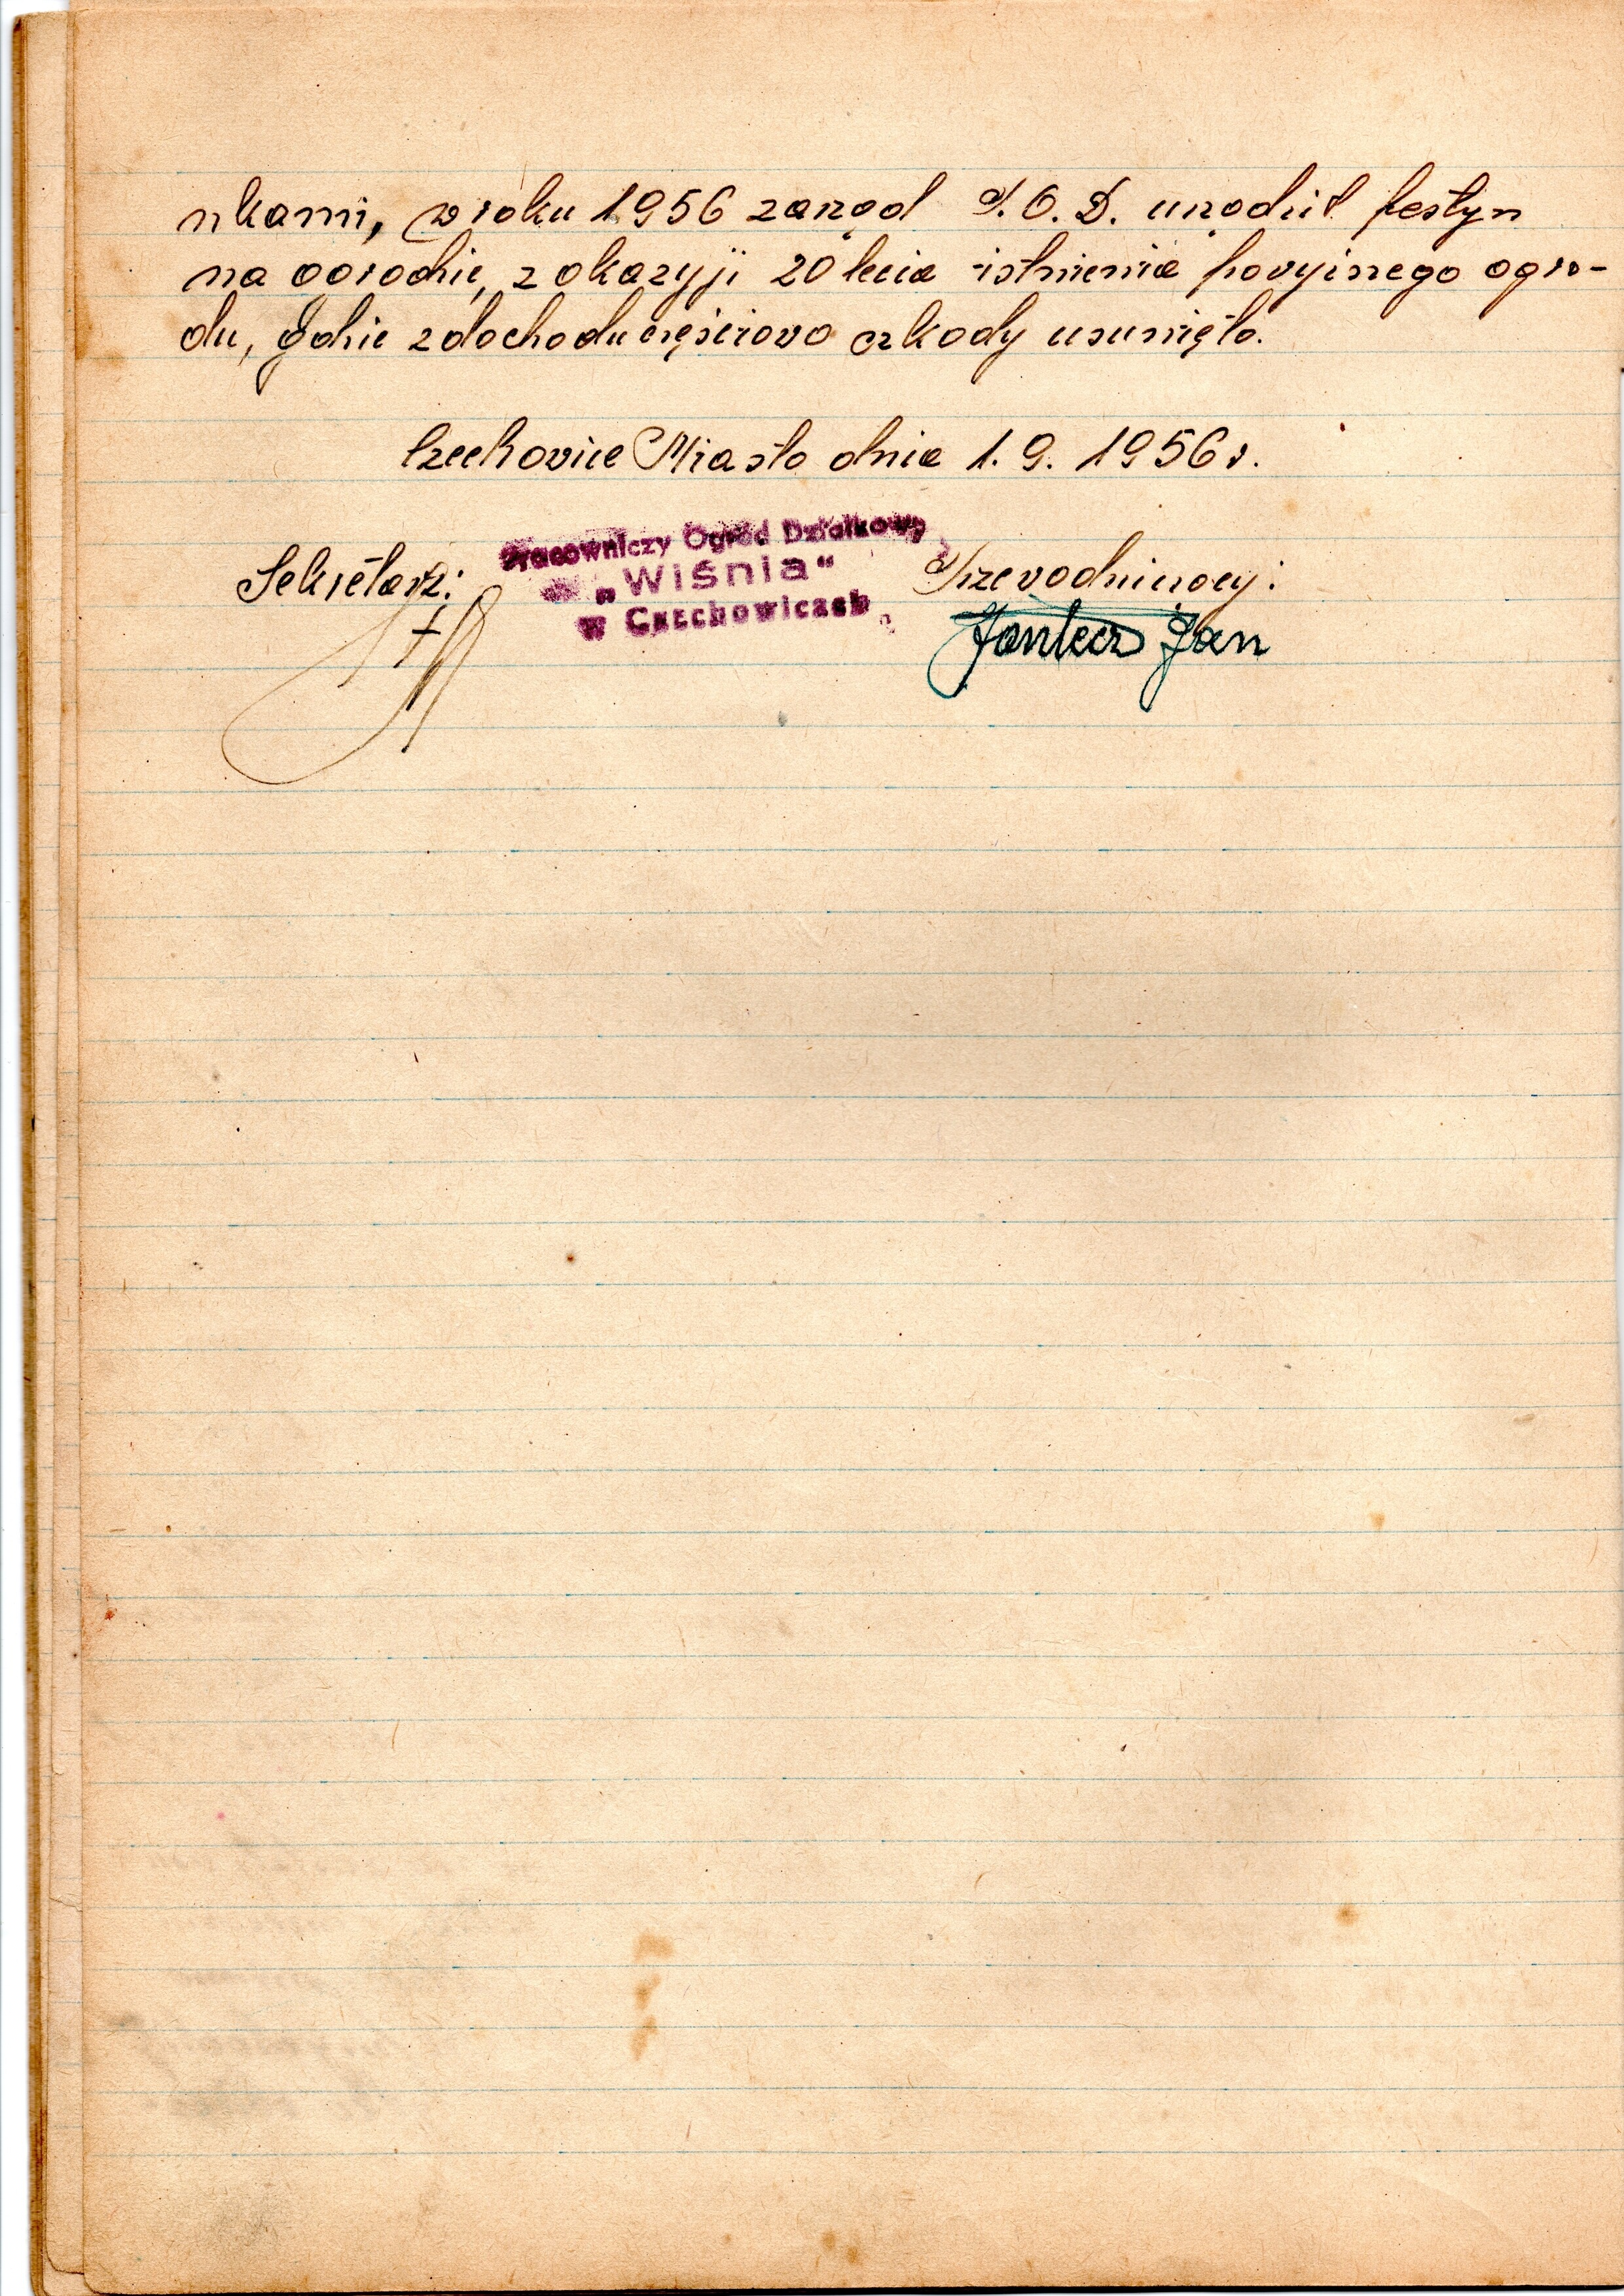 nkami, w roku 1956 zarząd P.O.D. urządził festyn
na ogrodzie, z okazyji 20 lecia istnienia powyższego ogro-
du, gdzie z dochodu częściowo szkody usunięto.
Czechowice Miasto dnia 1.9.1956 r.
Pracowniczy Ogród Działkowy
„Wiśnia"
w Czechowicach
Sekretarz:
Przewodniczący:
Jan